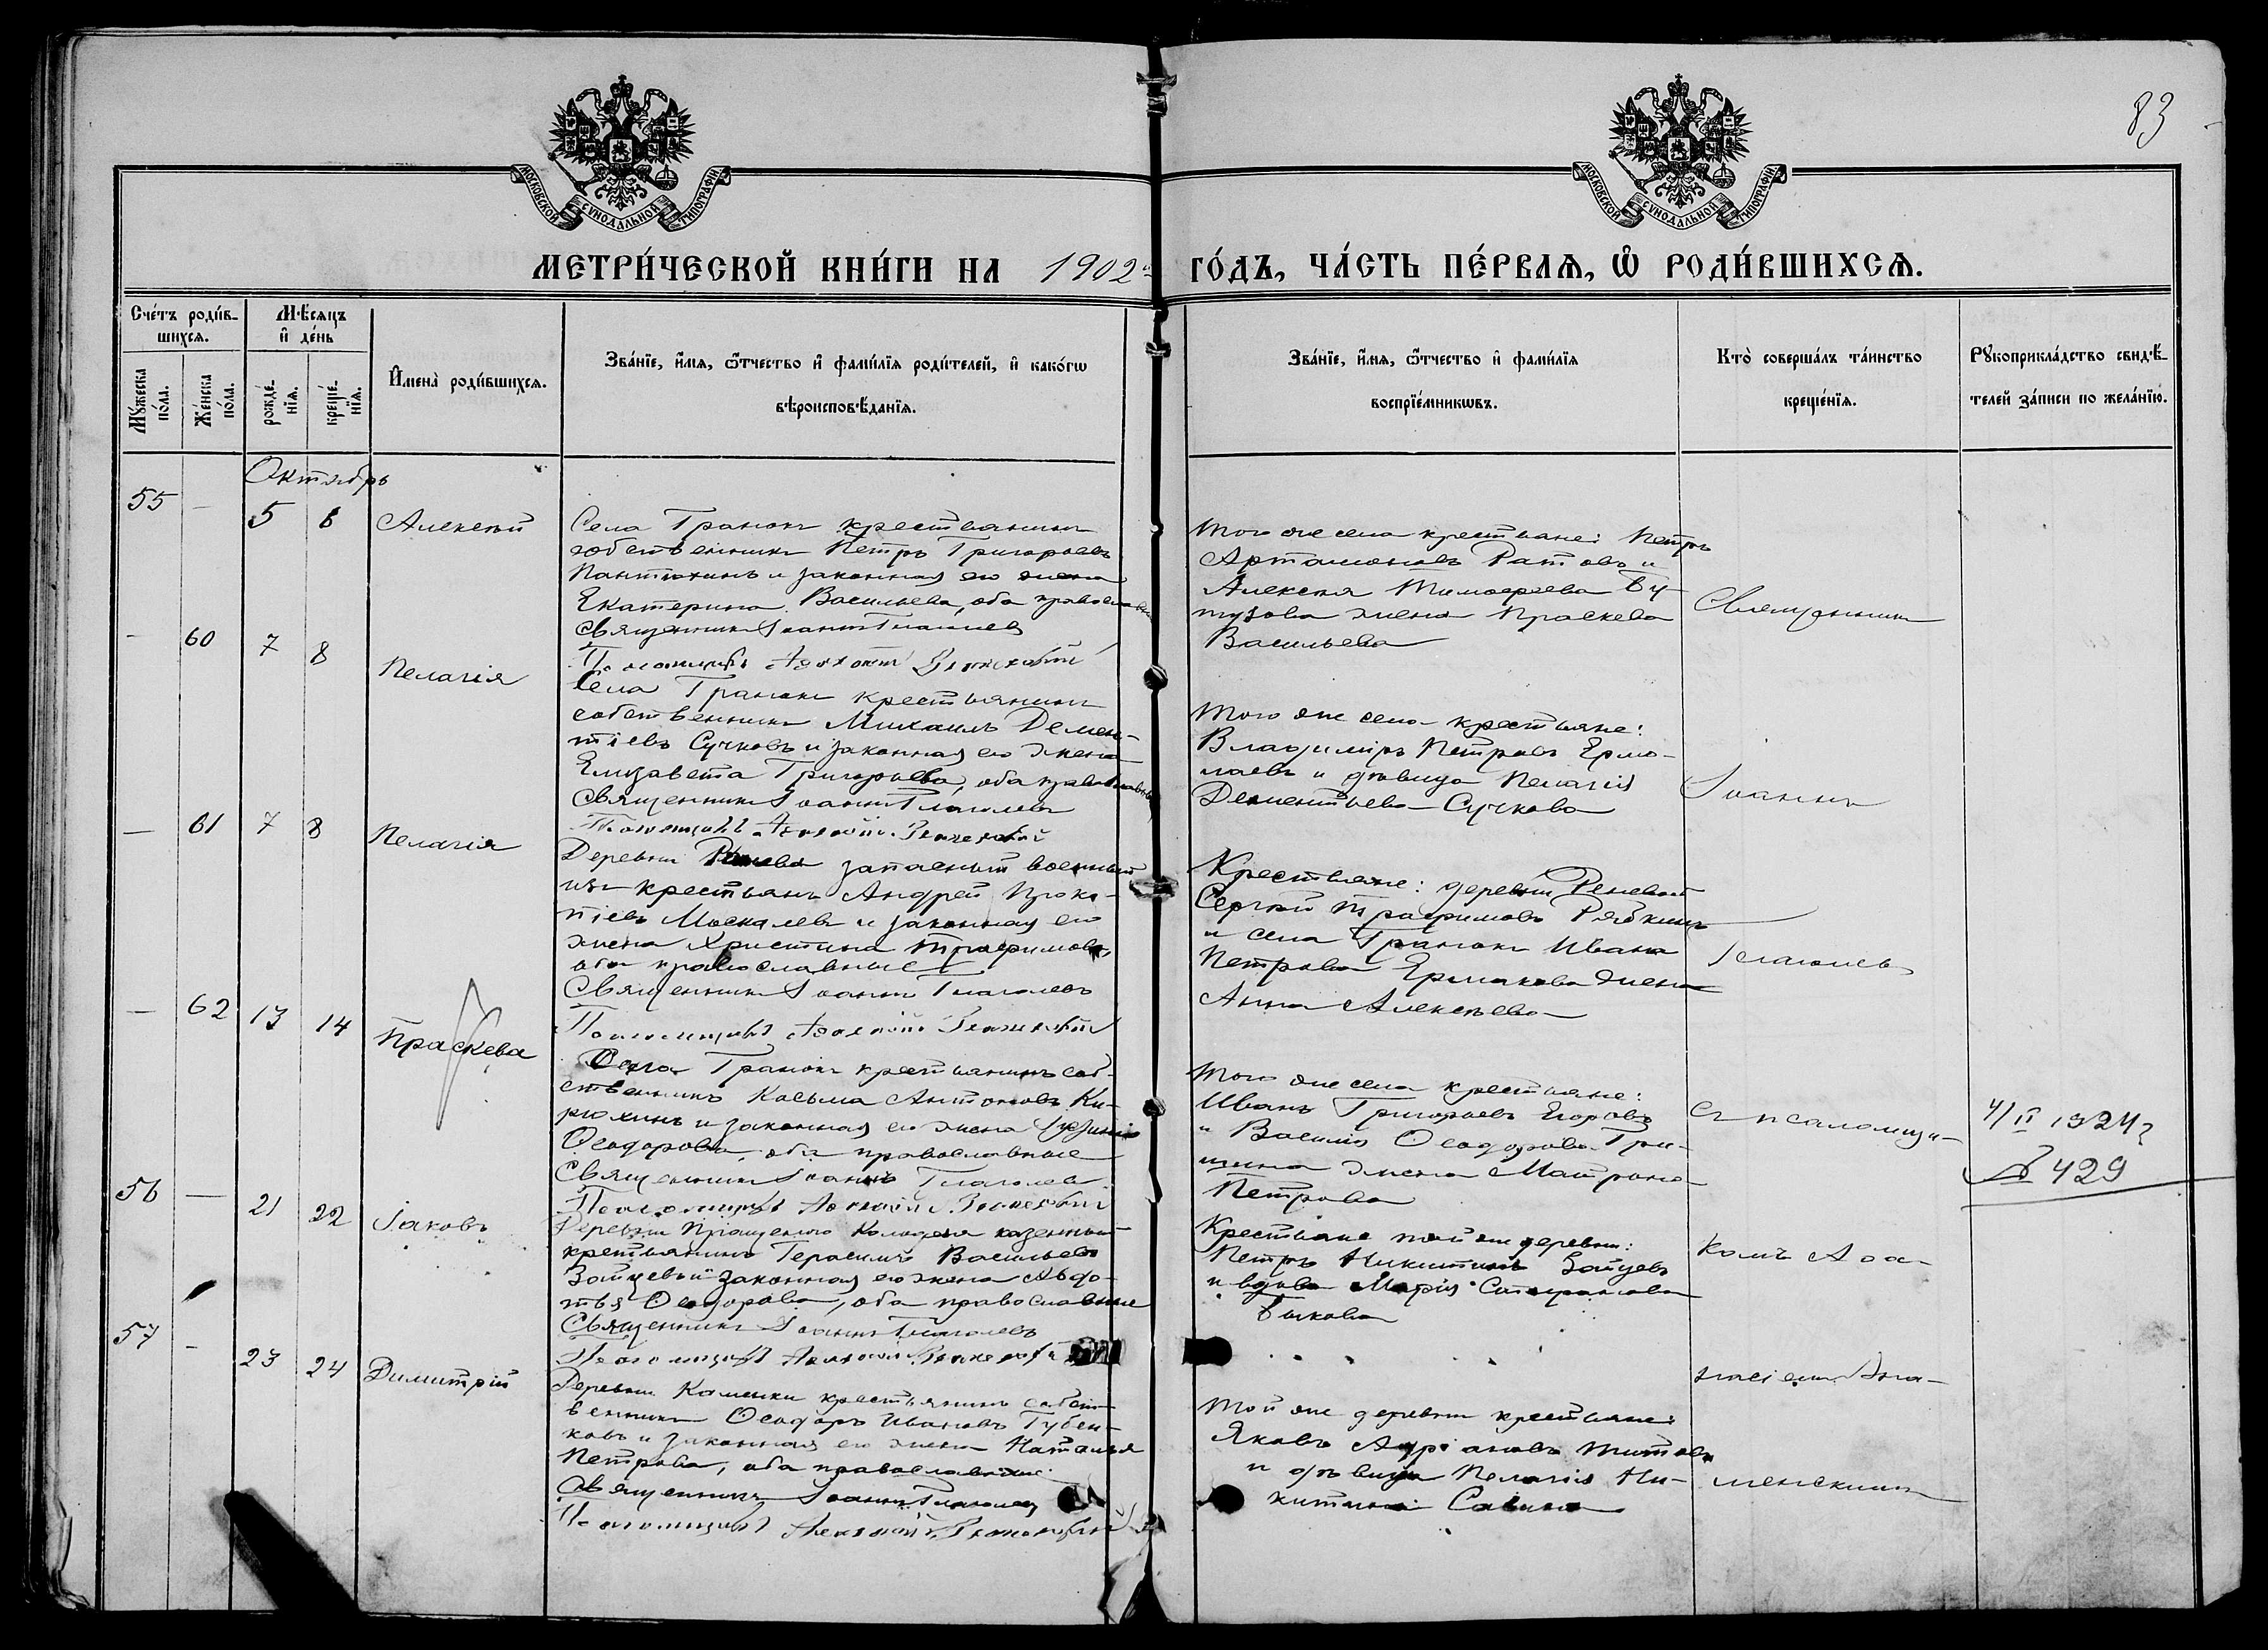 83
МОСКОВСКОЙ СѴНОДАЛЬНОЙ ТИПОГРАФІИ
МОСКОВСКОЙ СѴНОДАЛЬНОЙ ТИПОГРАФІИ
МЕТРИ́ЧЕСКОЙ КНИ́ГИ НА 1902 ГО́ДЪ, ЧА́СТЬ ПЕ́РВАѦ, Ѡ҆ РОДИ́ВШИХСѦ.
Сче́тъ роди́в-
шихсѧ.
Мꙋ́жеска
по́ла.
Же́нска
по́ла.
Мѣ́сяцъ
и҆ де́нь
рожде́-
нїѧ.
креще́-
нїѧ.
И҆мена̀ роди́вшихсѧ.
Зва́нїе, и҆́мѧ, ѻ҆́тчество и҆ фами́лїѧ роди́телей, и҆ како́гѡ
вѣроисповѣ́данїѧ.
Зва́нїе, и҆́мѧ, ѻ҆́тчество и҆ фами́лїѧ
воспрїе́мникѡвъ.
Кто̀ соверша́лъ та́инство
креще́нїѧ.
Рꙋкоприкла́дство свидѣ́-
телей за́писи по жела́нїю.
Октябрь
55 - 5 6 Алексѣй
Села Гранокъ крестьянинъ
собственникъ Петръ Григорьевъ
Пантюхинъ и законная его жена
Екатерина Васильева, оба православные
Священникъ Іоаннъ Глаголевъ
Того же села крестьяне: Петръ
Артамоновъ Ратовъ и
Алексѣя Тимофеева Бу-
тузова жена Праскева
Васильева
Священникъ
- 60 7 8 Пелагія
Села Гранокъ крестьянинъ
собственникъ Михаилъ Демен-
тіевъ Сучковъ и законная его жена
Елизавета Григорьева, оба православные
Священникъ Іоаннъ Глаголевъ
Того же села крестьяне:
Владиміръ Петровъ Ермо-
лаевъ и дѣвица Пелагія
Дементьева Сучкова
Іоаннъ
- 61 7 8 Пелагія
Деревни Ренева запасный военный
изъ крестьянъ Андрей Проко-
піевъ Москалевъ и законная его
жена Христина Трофимова,
оба православные
Священникъ Іоаннъ Глаголевъ
Крестьяне: деревни Реневой
Сергѣй Трофимовъ Рябкинъ
и села Гранокъ Ивана
Петрова Ермакова жена
Анна Алексѣева
Глаголевъ
- 62 13 14 Праскева
Села Гранокъ крестьянинъ соб-
ственникъ Косьма Антоновъ Ки-
рюхинъ и законная его жена
Ѳеодорова, оба православные
Священникъ Іоаннъ Глаголевъ
Того же села крестьяне:
Иванъ Григорьевъ Егоровъ
и Василія Ѳеодорова Гри-
шина жена Матрона
Петрова
съ псаломщи-
4/II 1924 г
№ 429
56 - 21 22 Іаковъ
Деревни Прощенаго Колодезя казенный
крестьянинъ Герасимъ Васильевъ
Зайцевъ и законная его жена Авдо-
тья Ѳеодорова, оба православные
Священникъ Іоаннъ Глаголевъ
Крестьяне той же деревни:
Петръ Никитинъ Зайцевъ
и вдова Марія
Быкова
комъ Аѳа-
57 - 23 24 Димитрій
Деревни Каменки крестьянинъ собст-
венникъ Ѳеодоръ Ивановъ Губен-
ковъ и законная его жена Наталья
Петрова, оба православные
Священникъ Іоаннъ Глаголевъ
Той же деревни крестьяне:
Яковъ Адріановъ Титовъ
и дѣвица Пелагія Ни-
китина Савина
насіемъ Зна-
менскимъ